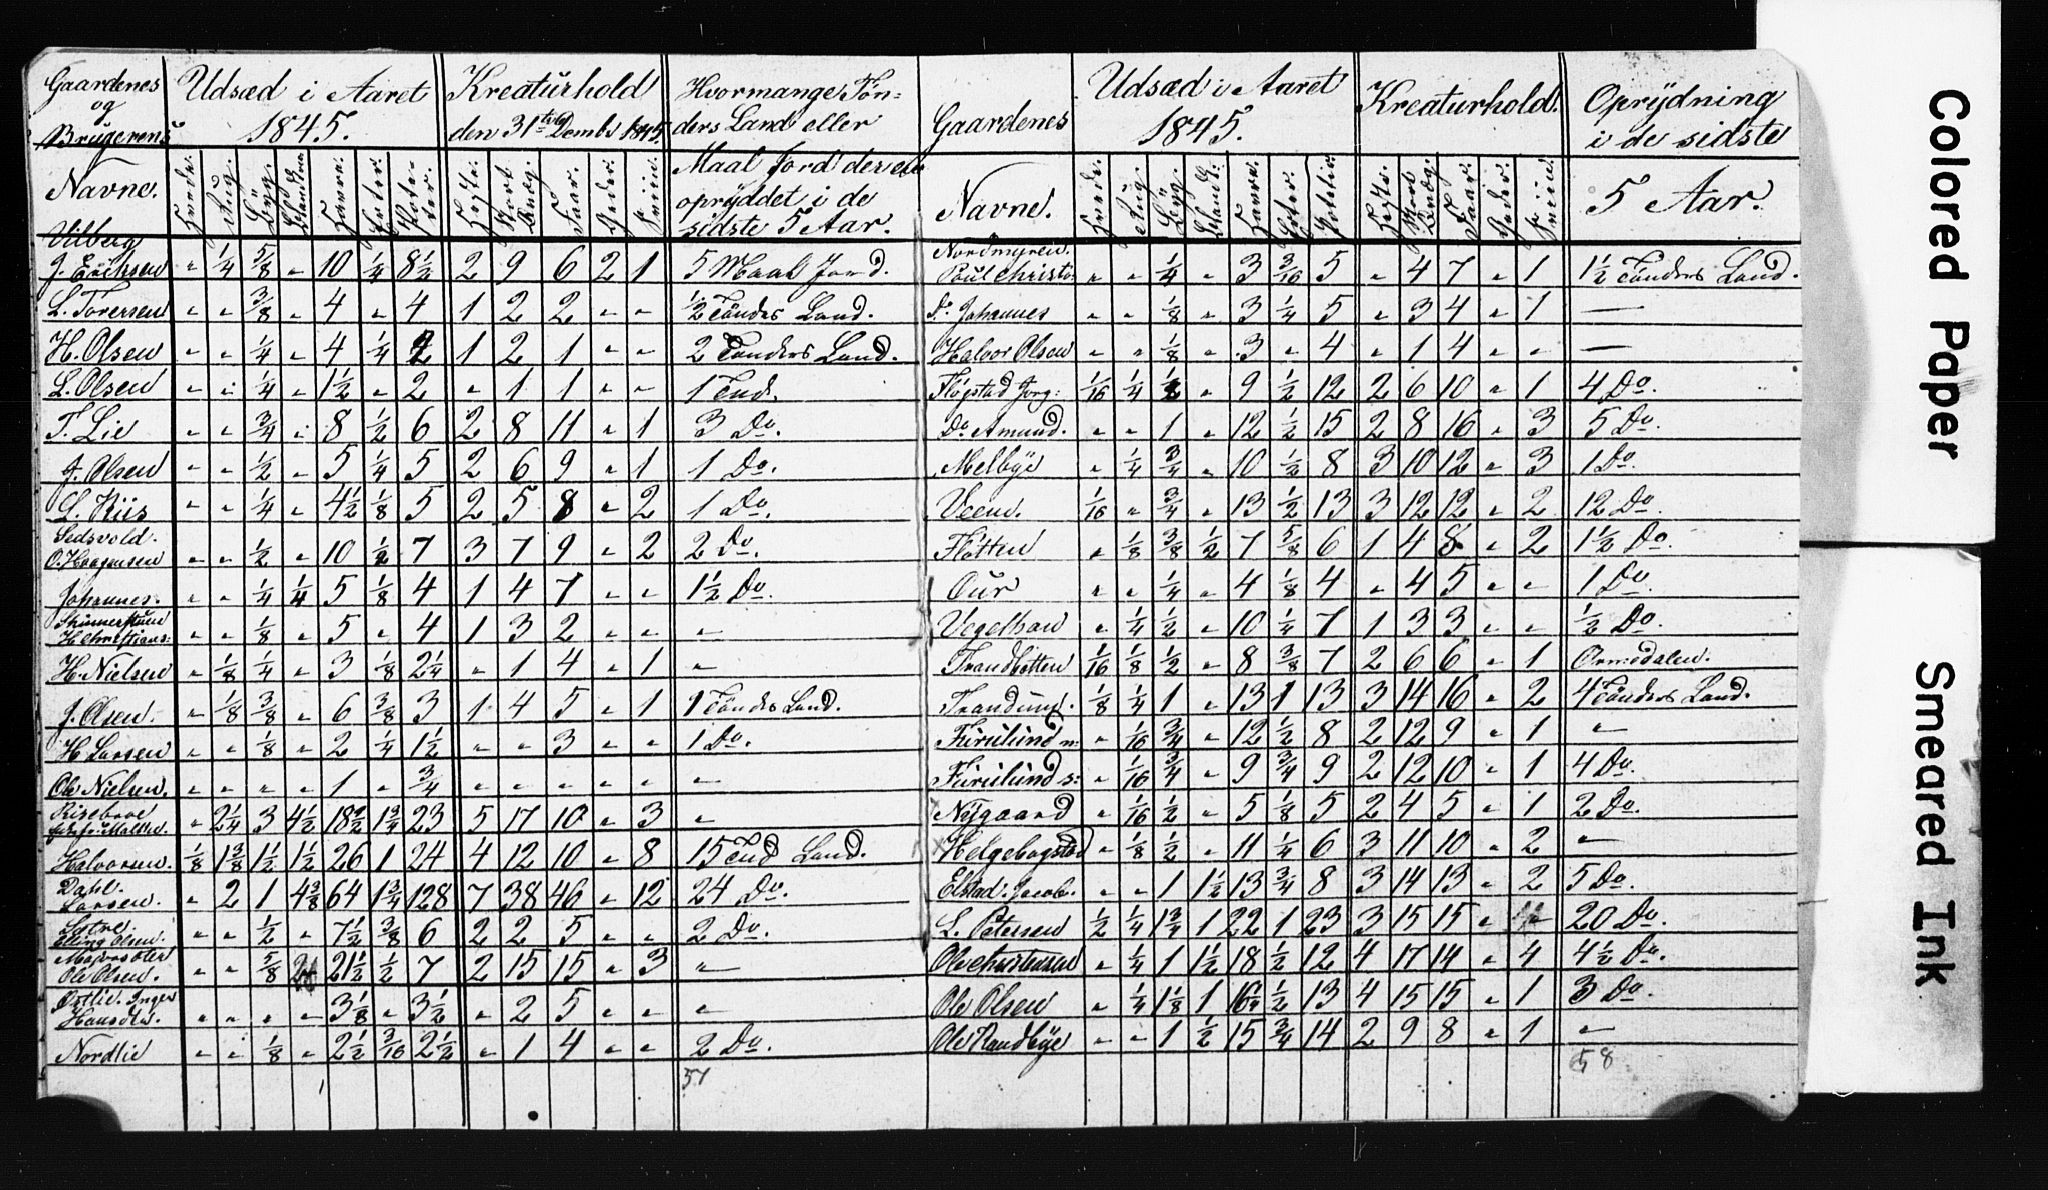 Gaardenes og Brugerens Navne. | Udsæd i Aaret 1845. | Kreaturhold den 31te Decmbr 1845. | Hvormange Tønders Land eller Maal Jord der er opryddet i de sidste 5 Aar.
Hvede. | Rug. | Byg. | Blandkorn | Havre. | Erter. | Poteter. | Heste. | Stort Qvæg. | Faar. | Geder. | Sviin.
Vilberg
J. Erichsen | " | 1/4 | 5/8 | " | 10 | 1/4 | 8 1/2 | 2 | 9 | 6 | 2 | 1 | 5 Maal Jord.
L. Torersen | " | " | 3/8 | " | 4 | " | 4 | 1 | 2 | 2 | " | " | 1/2 Tønders Land.
H. Olsen | " | " | 1/4 | " | 4 | 1/4 | 2 | 1 | 2 | 1 | " | " | 2 Tønders Land.
L. Olsen | " | " | 1/4 | " | 1 1/2 | " | 2 | " | 1 | 1 | " | " | 1 Tnd.
T. Lie | " | " | 3/4 | " | 8 | 1/2 | 6 | 2 | 8 | 11 | " | 1 | 3 Do.
J. Olsen | " | " | 1/2 | " | 5 | 1/4 | 5 | 2 | 6 | 9 | " | 1 | 1 Do.
L. Kiis | " | " | 1/4 | " | 4 1/2 | 1/8 | 5 | 2 | 5 | 8 | " | 2 | 1 Do.
Sedsvold.
O. Haagensen | " | " | 1/2 | " | 10 | 1/2 | 7 | 3 | 7 | 9 | " | 2 | 2 Do.
Johannes. | " | " | 1/4 | 1/4 | 5 | 1/8 | 4 | 1 | 4 | 7 | " | " | 1 1/2 Do.
Skinnerstuen
H Christians: | " | " | 1/8 | " | 5 | " | 4 | 1 | 3 | 2 | " | " | "
H. Nielsen | " | 1/8 | 1/4 | " | 3 | 1/8 | 2 1/4 | " | 1 | 4 | " | 1 | "
J. Olsen. | " | 1/8 | 3/8 | " | 6 | 3/8 | 3 | 1 | 4 | 5 | " | 1 | 1 Tønders Land.
H Larsen | " | " | 1/8 | " | 2 | 1/4 | 1 1/2 | " | " | 3 | " | " | 1 Do.
Ole Nielsen. | " | " | " | " | 1 | " | 3/4 | " | " | " | " | " | "
Risebroe | " | 2 1/4 | 3 | 4 1/2 | 18 1/2 | 1 3/4 | 23 | 5 | 17 | 10 | " | 3 | "
Halvorsen. | 1/8 | 1 3/8 | 1 1/2 | 1 1/2 | 26 | 1 | 24 | 4 | 12 | 10 | " | 8 | 15 Tnd Land.
Dahl.
Larsen. | " | 2 | 1 | 4 3/8 | 64 | 1 3/4 | 128 | 7 | 38 | 46 | " | 12 | 24 Do.
Sætre.
Elling Olsen. | " | " | 1/2 | " | 7 1/2 | 3/8 | 6 | 2 | 2 | 5 | " | " | 2 Do.
Ole Olsen. | " | " | 5/8 | 2 | 21 1/2 | 1/2 | 7 | 2 | 15 | 15 | " | 3 | "
Østlie. Inger
Hansdtr. | " | " | " | " | 3 1/8 | " | 3 1/2 | " | 2 | 5 | " | " | "
Nordlie | " | " | 1/8 | " | 2 1/2 | 3/16 | 2 1/2 | " | 1 | 4 | " | " | 2 Do.
51
Gaardenes Navne. | Udsæd i Aaret 1845. | Kreaturhold. | Oprydning i de sidste 5 Aar.
Hvede. | Rug | Byg. | Blandk. | Havre. | Erter. | Poteter. | Heste. | Stort Qvæg. | Faar. | Geder. | Sviin.
Nordmyren.
Poul Christo: | " | " | 1/4 | " | 3 | 3/16 | 5 | " | 4 | 7 | " | 1 | 1 1/2 Tønders Land.
Do. Johannes | " | " | 1/8 | " | 3 | 1/4 | 5 | " | 3 | 4 | " | 1 | —
Halvor Olsen | " | " | 1/8 | " | 3 | " | 4 | " | 1 | 4 | " | " | —
Fløgstad Jørg: | 1/16 | 1/4 | 1/2 | " | 9 | 1/2 | 12 | 2 | 6 | 10 | " | 1 | 4 Do.
Do. Amund. | " | " | 1 | " | 12 | 1/2 | 15 | 2 | 8 | 16 | " | 3 | 5 Do.
Melbye | " | 1/4 | 3/4 | " | 10 | 1/2 | 8 | 3 | 10 | 12 | " | 3 | 1 Do.
Veen. | 1/16 | " | 3/4 | " | 13 | 1/2 | 13 | 3 | 12 | 12 | " | 2 | 12 Do
Fløtten | " | 1/8 | 3/8 | 1/2 | 7 | 5/8 | 6 | 1 | 4 | 8 | " | 2 | 1 1/2 Do.
Our | " | " | 1/4 | " | 4 | 1/8 | 4 | " | 4 | 5 | " | " | 1 Do
Vegelsau | " | 1/4 | 1/2 | " | 10 | 1/4 | 7 | 1 | 3 | 3 | " | " | 1/2 Do.
Trandbøtten | 1/16 | 1/8 | 1/2 | " | 8 | 3/8 | 7 | 2 | 6 | 6 | " | 1 | Ormedalen.
Trandum. | 1/8 | 1/4 | 1 | " | 13 | 1 | 13 | 3 | 14 | 16 | " | 2 | 4 Tønders Land.
Furulund n: | " | 1/16 | 3/4 | " | 12 | 1/2 | 8 | 2 | 12 | 9 | " | 1 | "
Furulund s: | " | 1/16 | 3/4 | " | 9 | 3/4 | 9 | 2 | 12 | 10 | " | 1 | 4 Do.
Nygaard | " | 1/16 | 1/2 | " | 5 | 1/8 | 5 | 2 | 4 | 5 | " | 1 | 2 Do.
x Helgebogstad | " | 1/8 | 1/2 | " | 11 | 1/4 | 6 | 3 | 11 | 10 | " | 2 | "
Elstad. Jacob. | " | " | 1 | 1 1/2 | 13 | 3/4 | 8 | 3 | 14 | 13 | " | 2 | 5 Do.
L. Petersen | 1/2 | 1/4 | 1 3/4 | 1 | 22 | 1 | 23 | 3 | 15 | 15 | " | 20 Do.
Ole Christensen | " | 1/4 | 1 | 1 1/2 | 18 | 1/2 | 12 | 4 | 17 | 14 | " | 4 | 4 1/2 Do.
Ole Olsen | " | 1/4 | 1 1/8 | 1 | 16 1/4 | 1/2 | 13 | 4 | 15 | 15 | " | 1 | 3 Do.
Ole Randbye | " | " | 1 | 1/2 | 15 | 3/4 | 14 | 2 | 9 | 8 | " | 1 | "
58
Colored Paper
Smeared Ink